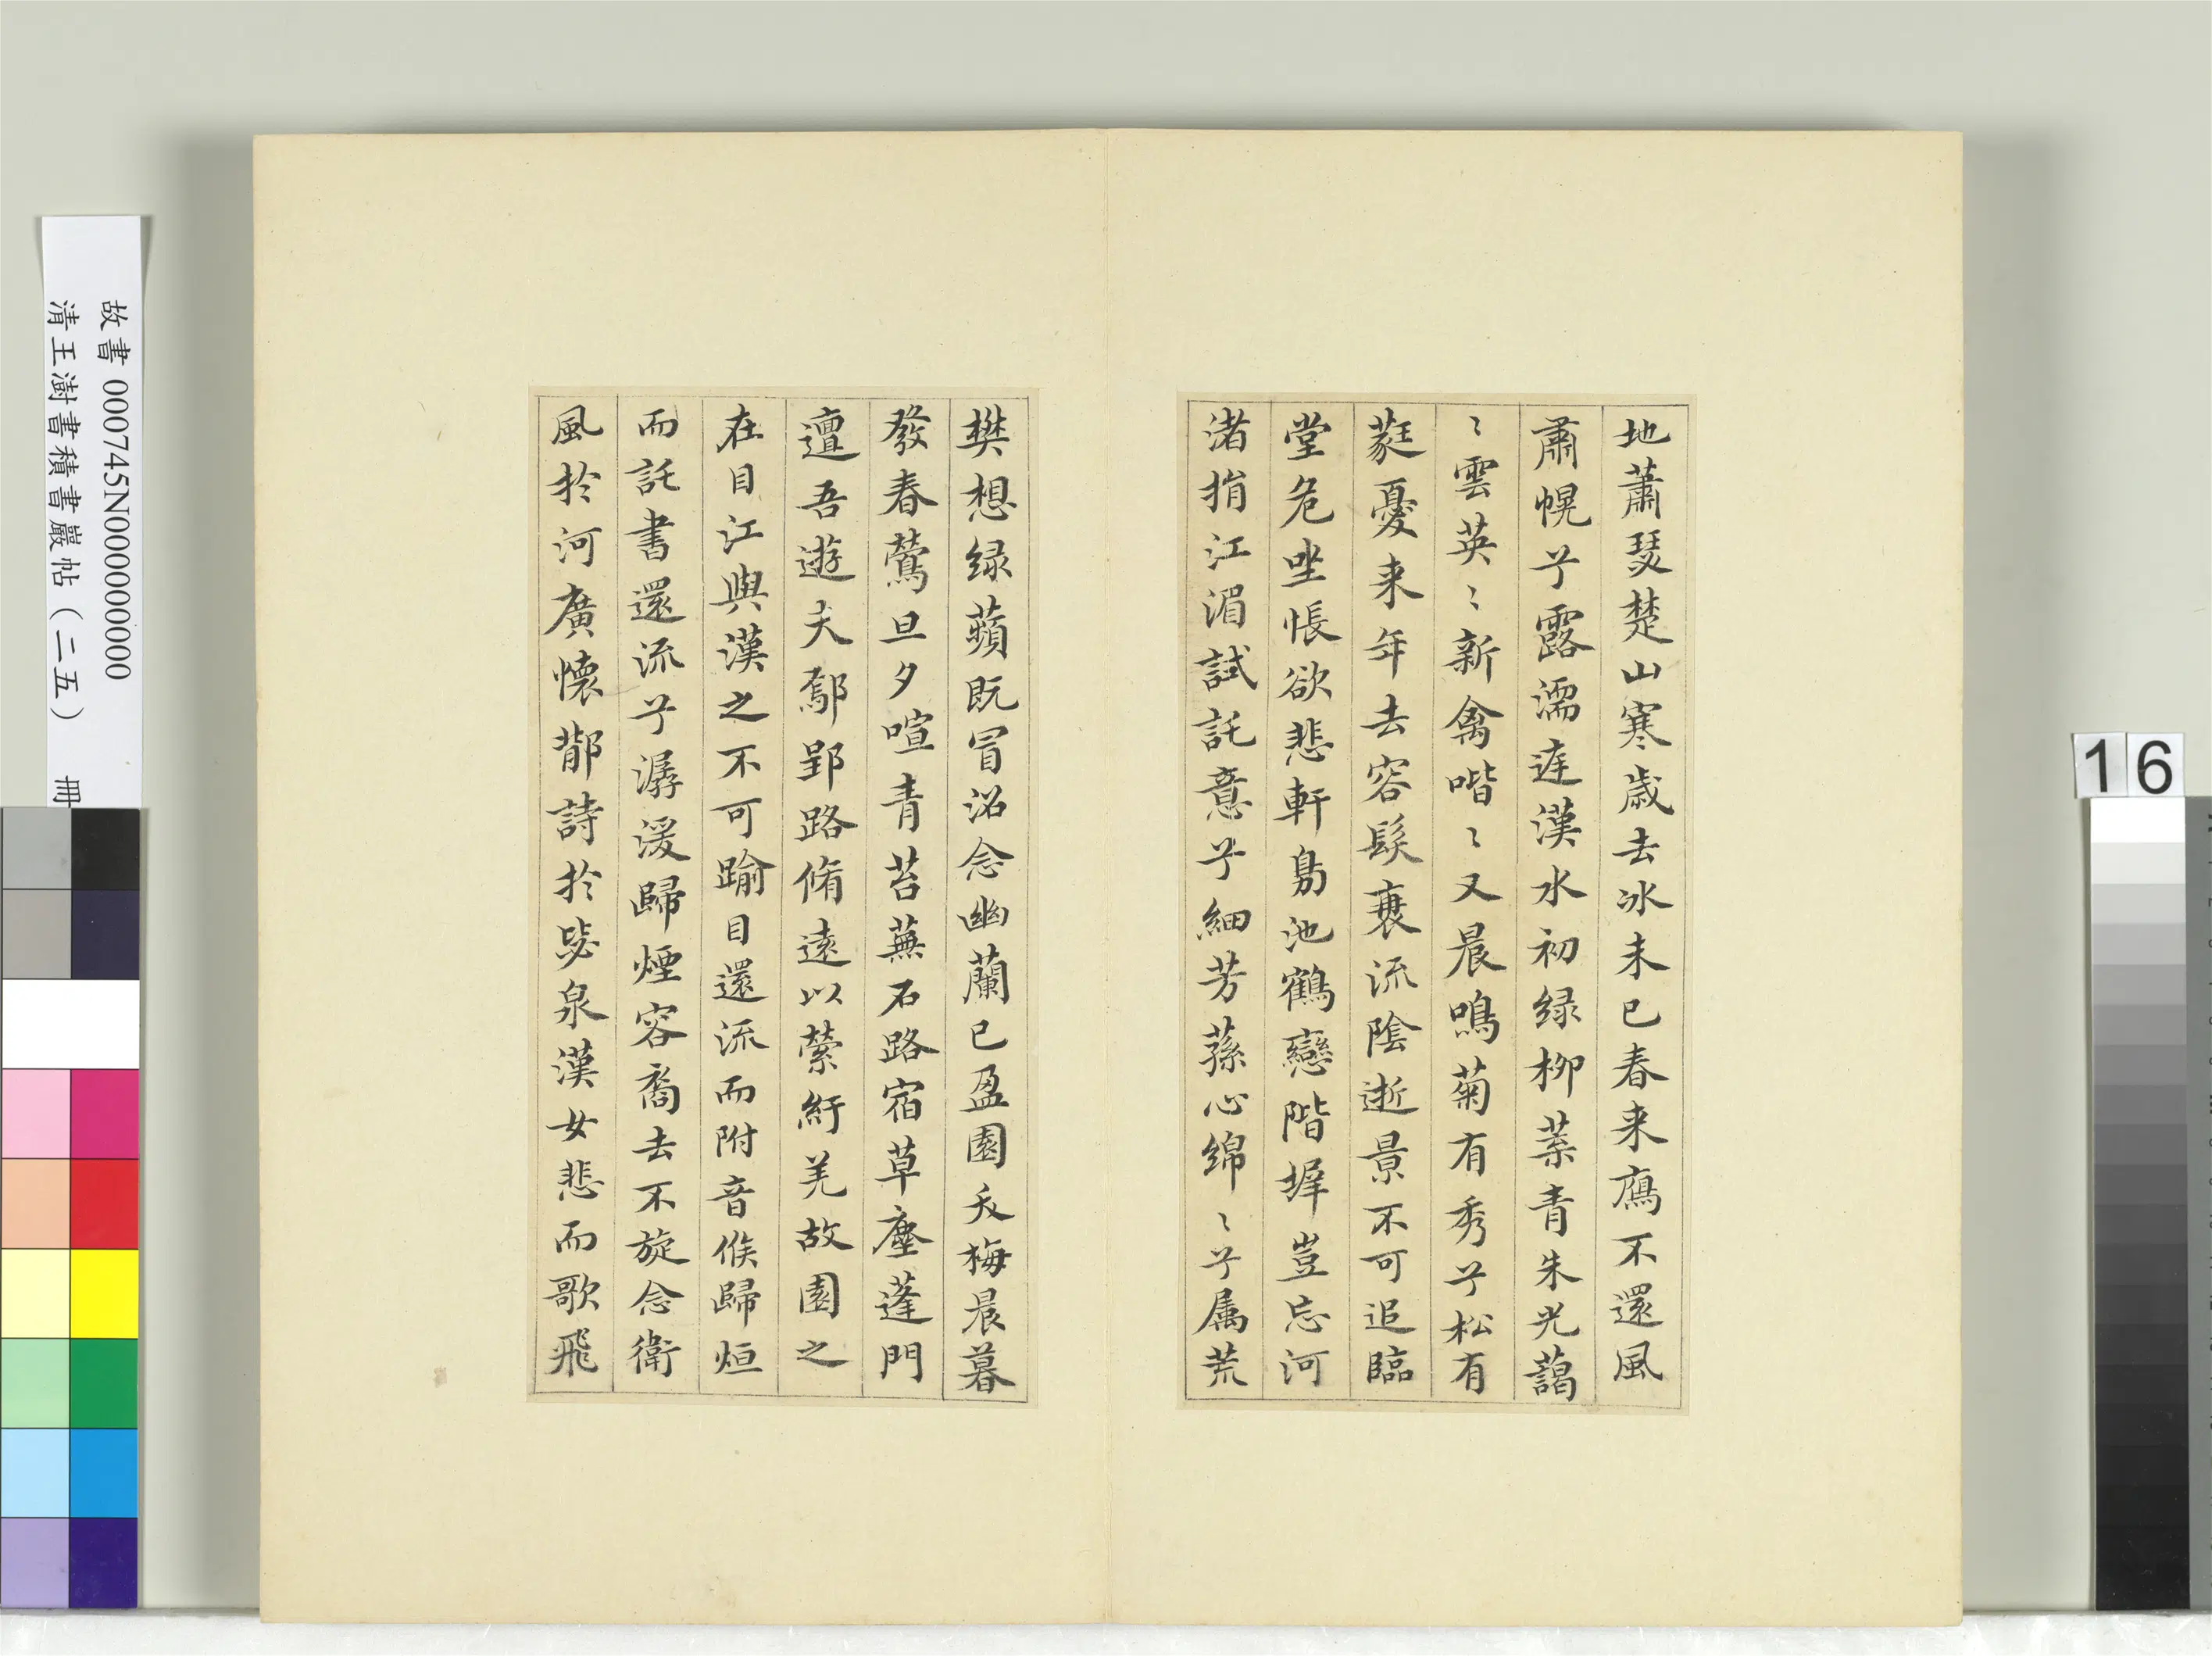 地蕭瑟楚山寒歲去冰未已春来鴈不還風
肅幌兮露濡庭漢水初緑柳葉青朱光藹
〻雲英〻新禽喈〻又晨鳴菊有秀兮松有
蕤憂来年去容髮衰流陰逝景不可追臨
堂危坐悵欲悲軒鳧池鶴戀階墀豈忘河
渚捐江湄試託意兮細芳蓀心綿〻兮属荒
樊想緑蘋既冒沼念幽蘭已盈園夭梅晨暮
發春鶯旦夕喧青苔蕪石路宿草塵蓬門
邅吾遊夫鄢郢路脩遠以縈紆羌故園之
在目江與漢之不可踰目還流而附音候歸烜
而託書還流兮潺湲歸煙容裔去不旋念衛
風於河廣懷鄁詩於毖泉漢女悲而歌飛
故書 000745N000000000
清王澍書積書巖帖（二五） 冊
16